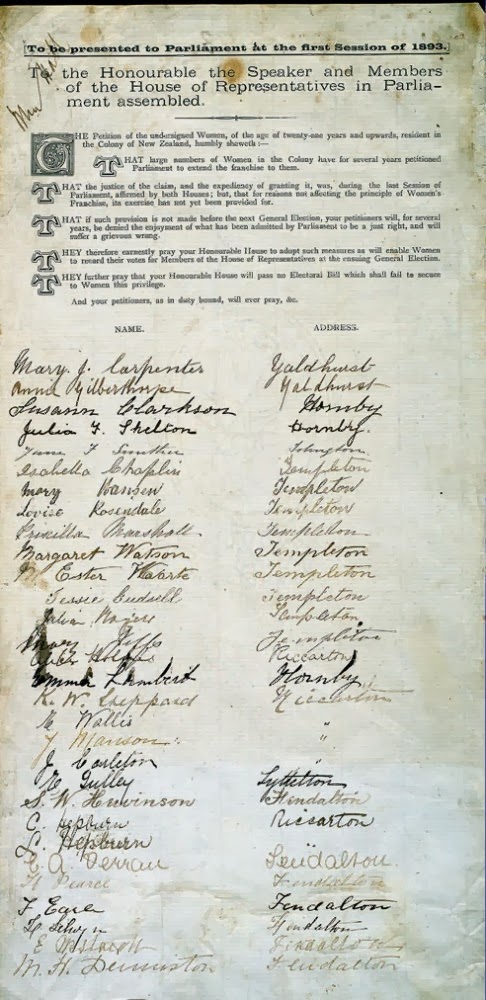 [To be presented to Parliament at the first Session of 1893.]
To the Honourable the Speaker and Members
of the House of Representatives in Parlia-
ment assembled.
THE Petition of the undersigned Women, of the age of twenty-one years and upwards, resident in
the Colony of New Zealand, humbly sheweth:—
THAT large numbers of Women in the Colony have for several years petitioned
Parliament to extend the franchise to them.
THAT the justice of the claim, and the expediency of granting it, was, during the last Session of
Parliament, affirmed by both Houses; but, that for reasons not affecting the principle of Women's
Franchise, its exercise has not yet been provided for.
THAT if such provision is not made before the next General Election, your petitioners will, for several
years, be denied the enjoyment of what has been admitted by Parliament to be a just right, and will
suffer a grievous wrong.
THEY therefore earnestly pray your Honourable House to adopt such measures as will enable Women
to record their votes for Members of the House of Representatives at the ensuing General Election.
THEY further pray that your Honourable House will pass no Electoral Bill which shall fail to secure
to Women this privilege.
And your petitioners, as in duty bound, will ever pray, &c.
NAME. ADDRESS.
Mary J. Carpenter Yaldhurst
Annie Gilberthorpe Yaldhurst
Susann Clarkson Hornby
Julia F. Shelton Hornby.
Isabella Chaplin Templeton
Mary Hansen Templeton
Louise Rosendale Templeton
Priscilla Marshall Templeton
Margaret Watson Templeton
M Ester Templeton
Jessie Templeton
Julia Templeton
Mary Templeton
Riccarton
Emma Lambert Hornby
K. W. Sheppard Riccarton
Wallis "
Manson "
J Carleton
Gulley Lyttelton
S. W. Hewinson Fendalton
C. Hepburn Riccarton
Hepburn
Fendalton
Pearce Fendalton
F Fendalton
Selwyn Fendalton
E Fendalton
M. H. Denniston Fendalton